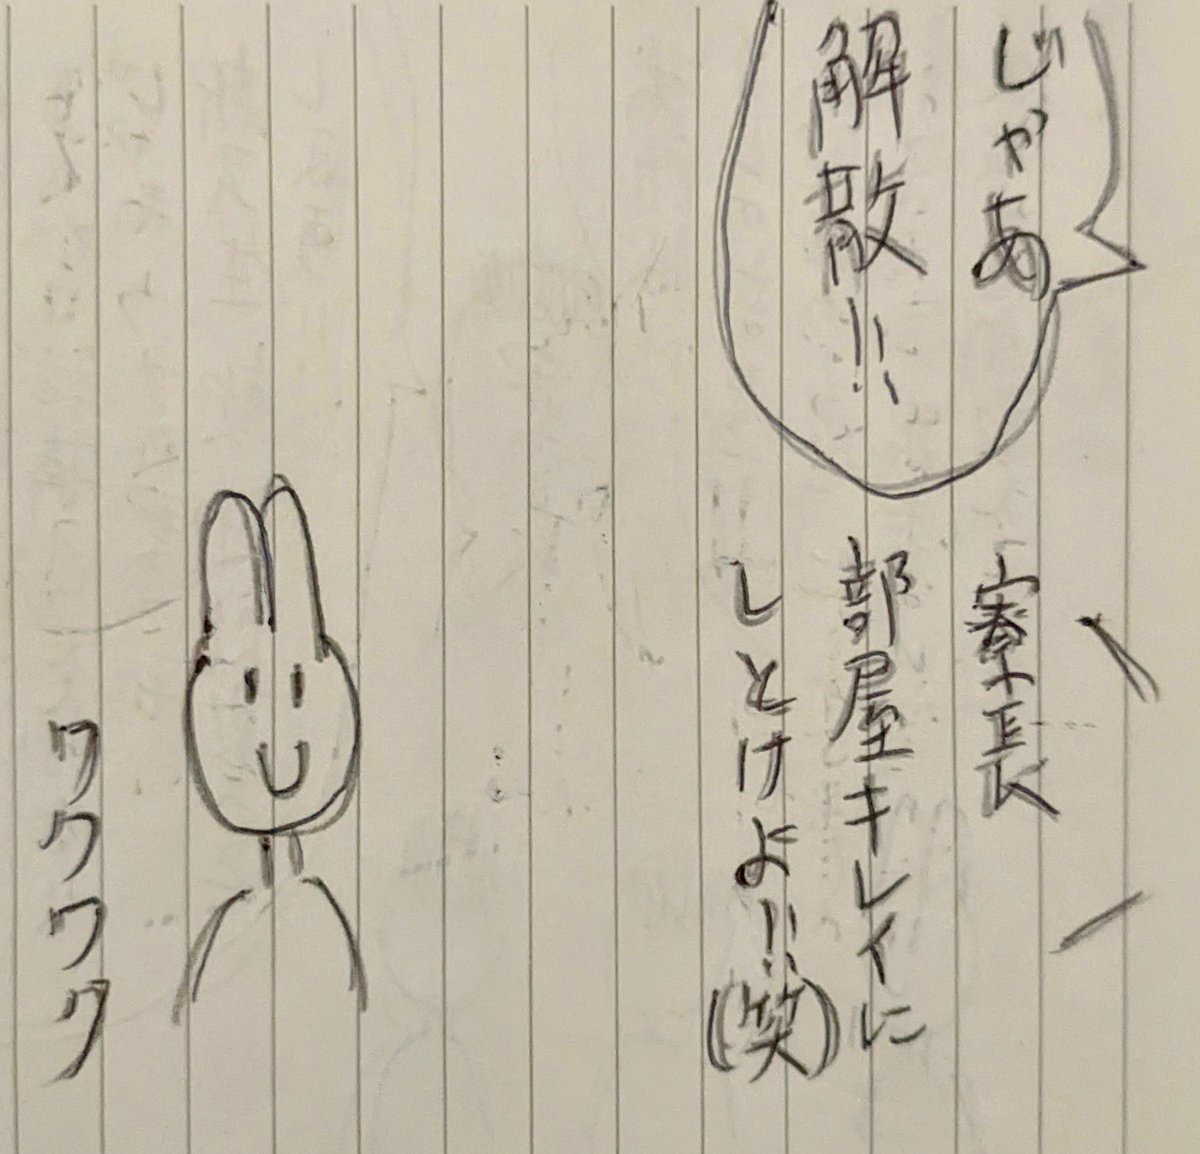 じゃあ
解散!!
寮長
部屋キレイに
しとけよ!!(笑)
ワクワク